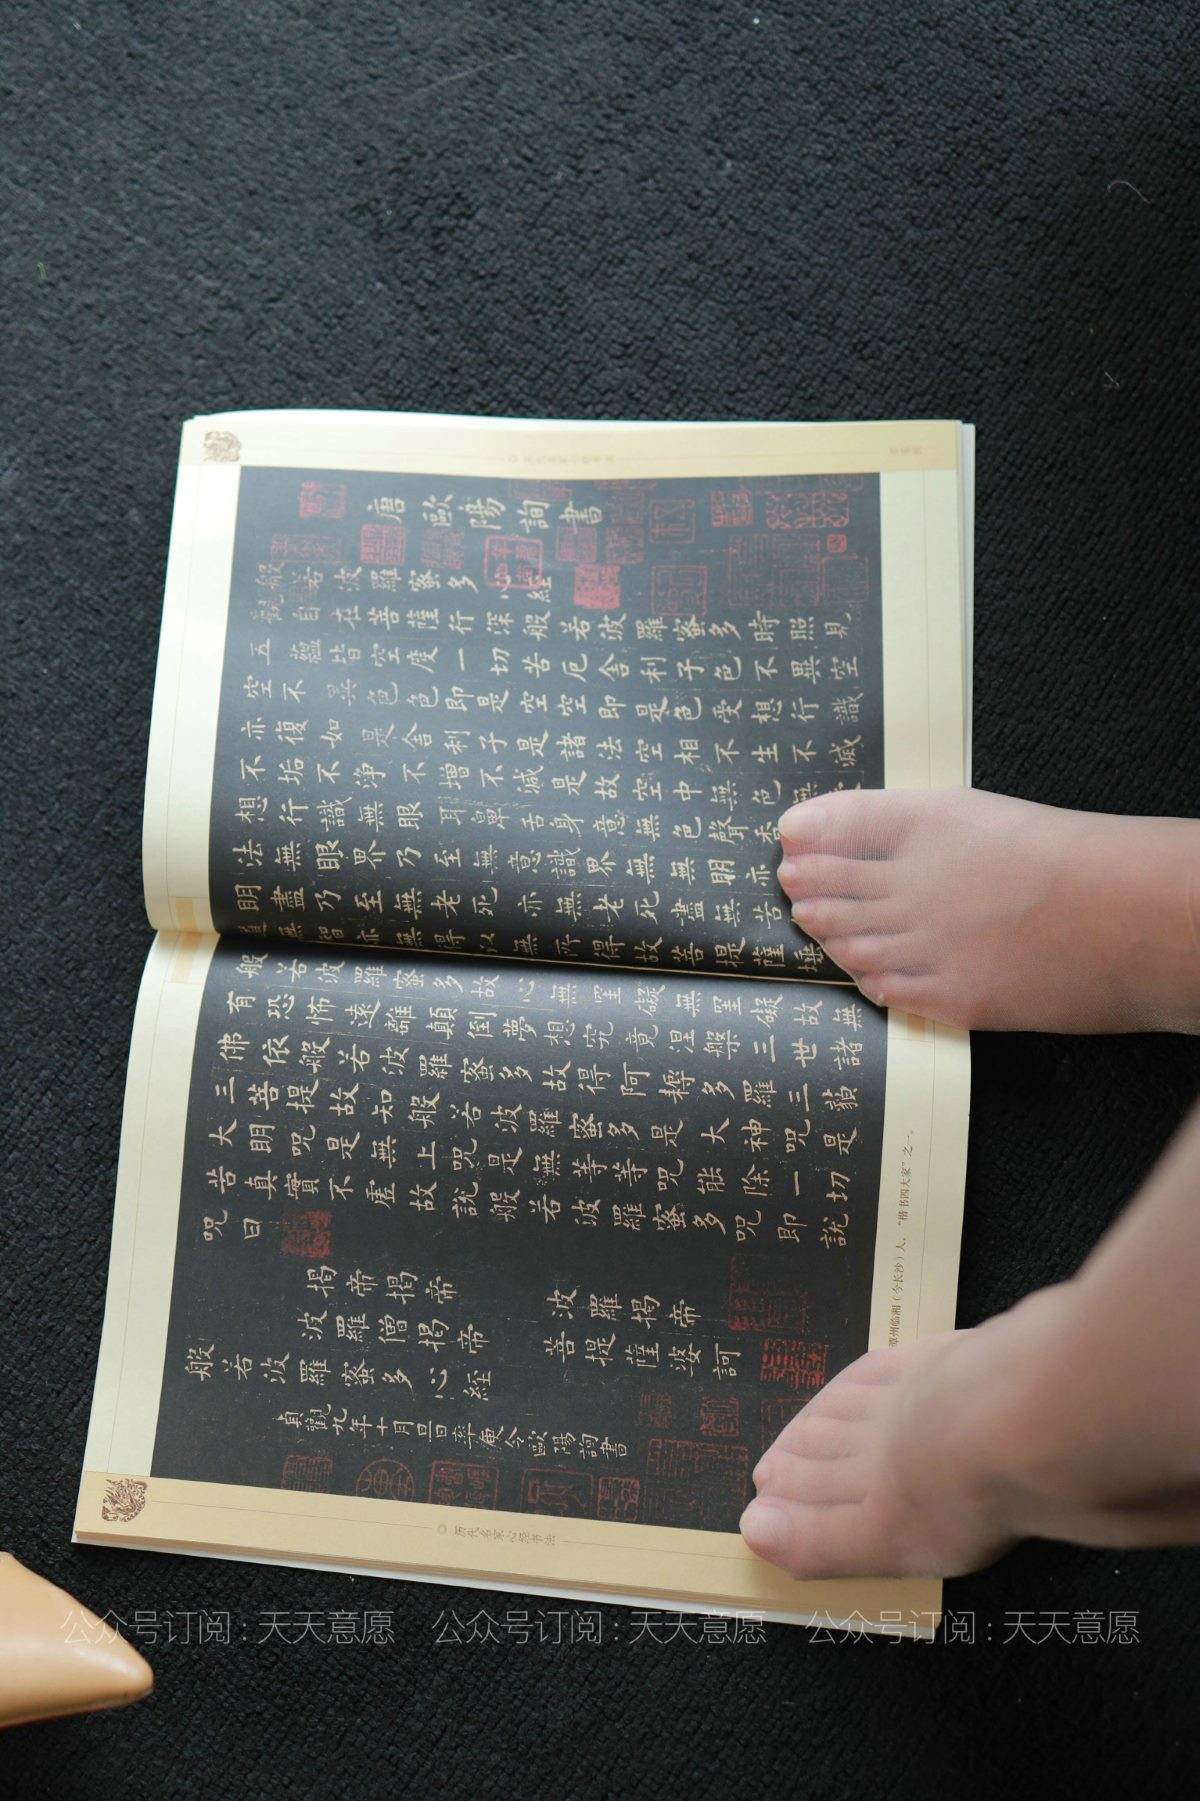 唐歐陽詢書
般若波羅蜜多心經
觀自在菩薩行深般若波羅蜜多時照見
五蘊皆空度一切苦厄舍利子色不異空
空不異色色即是空空即是色受想行識
亦復如是舍利子是諸法空相不生不滅
不垢不淨不增不減是故空中無色無
想行識無眼耳鼻舌身意無色聲香
法無眼界乃至無意識界無無明亦
明盡乃至無老死亦無老死盡無苦
道無智亦無得以無所得故菩提薩埵
般若波羅蜜多故心無罣礙無罣礙故無
有恐怖遠離顛倒夢想究竟涅槃三世諸
佛依般若波羅蜜多故得阿耨多羅三藐
三菩提故知般若波羅蜜多是大神咒是
大明咒是無上咒是無等等咒能除一切
苦真實不虛故說般若波羅蜜多咒即說
咒曰
揭帝揭帝 波羅揭帝
波羅僧揭帝 菩提薩婆訶
般若波羅蜜多心經
貞觀九年十月旦日率更令歐陽詢書
潭州临湘（今长沙）人，“楷书四大家”之一。
历代名家心经书法
公众号订阅：天天意愿 公众号订阅：天天意愿 公众号订阅：天天意愿